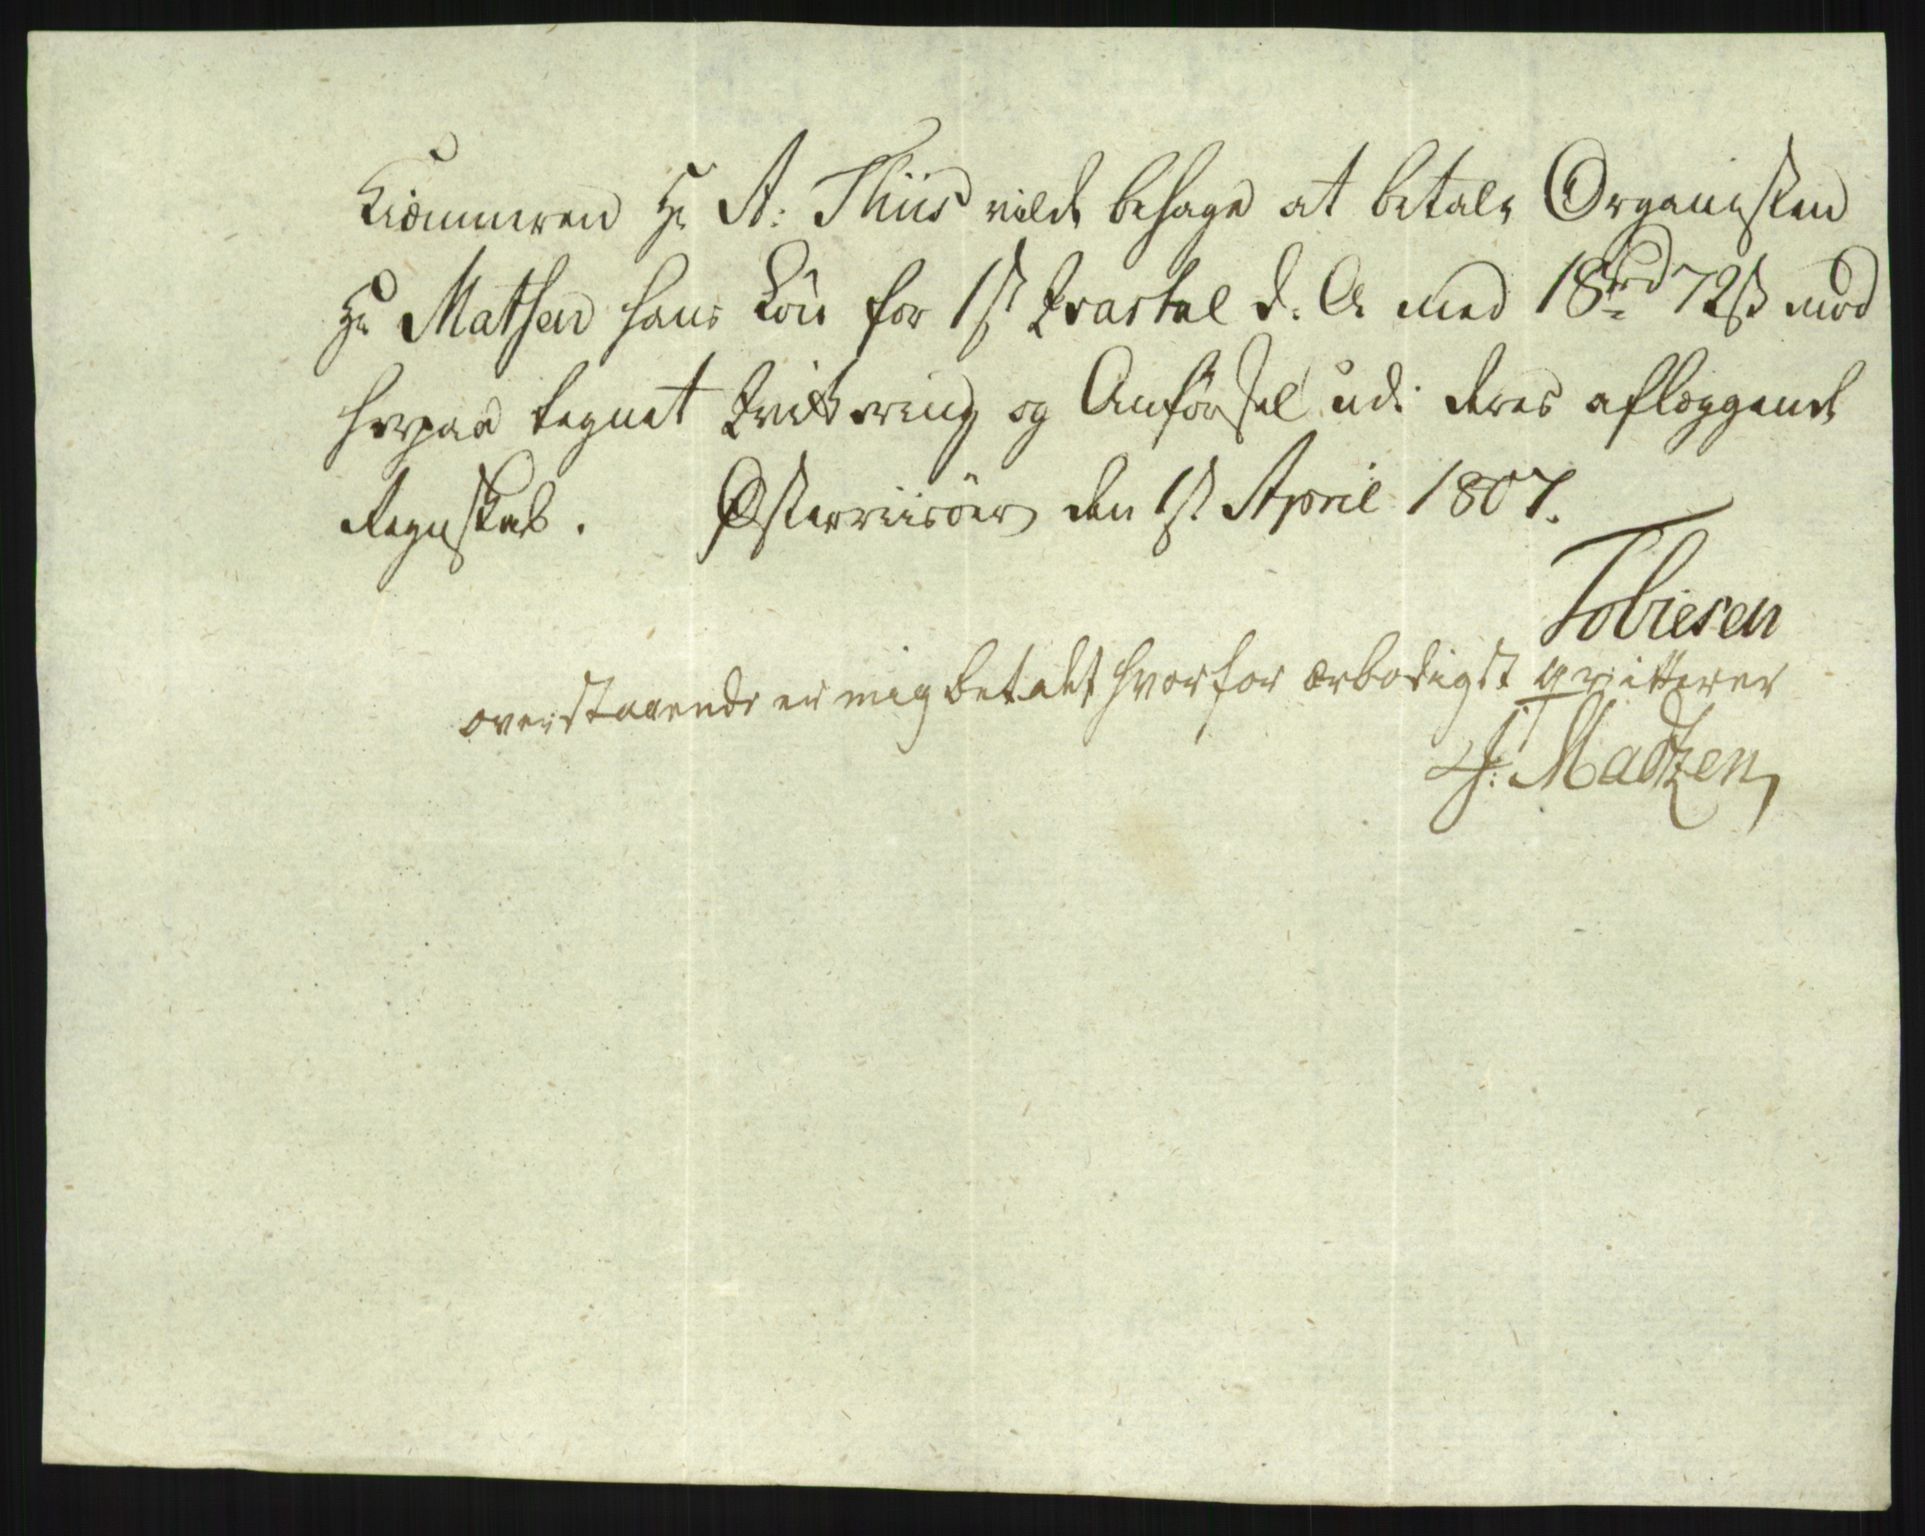 Kiæmneren Hr A: Thiis vilde behage at betale Organisten
Hr Mathsen hans Løn for 1st Qvartal d: A med 18rd 72ß mod
herpaa tegnet Qvittering og Anførsel udi deres aflæggende
Regnskab. Østerriisöer den 1st April 1807.
Tobiesen
overstaaende er mig betalt hvorfor ærbødigst qvitterer
H: Madtzen